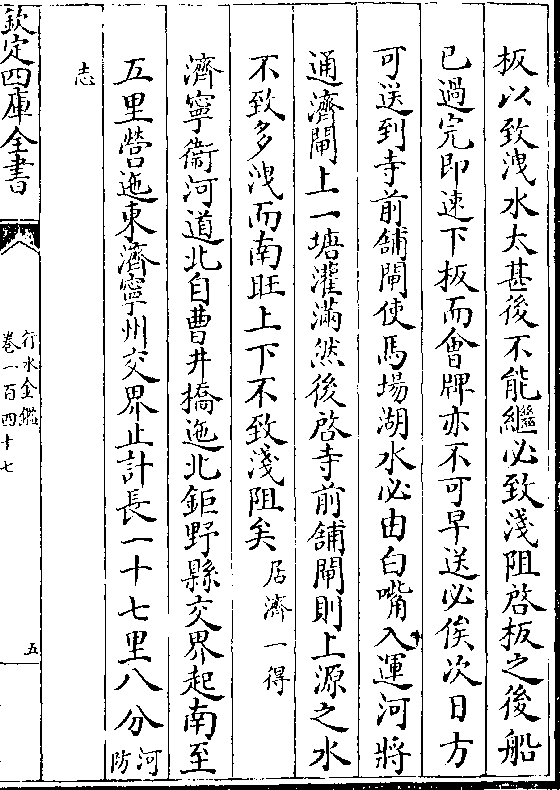 板以致洩水太甚後不能繼必致淺阻啓板之後船
已過完即速下板而會牌亦不可早送必俟次日方
可送到寺前舖閘使馬塲湖水必由白嘴入運河將
通濟閘上一塘灌滿然後啓寺前舖閘則上源之水
不致多洩而南旺上下不致淺阻矣居濟一得
濟寧衞河道北自曹井橋迤北鉅野縣交界起南至
五里營迤東濟寧州交界止計長一十七里八分河防
志
欽定四庫全書
行水金鑑
卷一百四十七
五